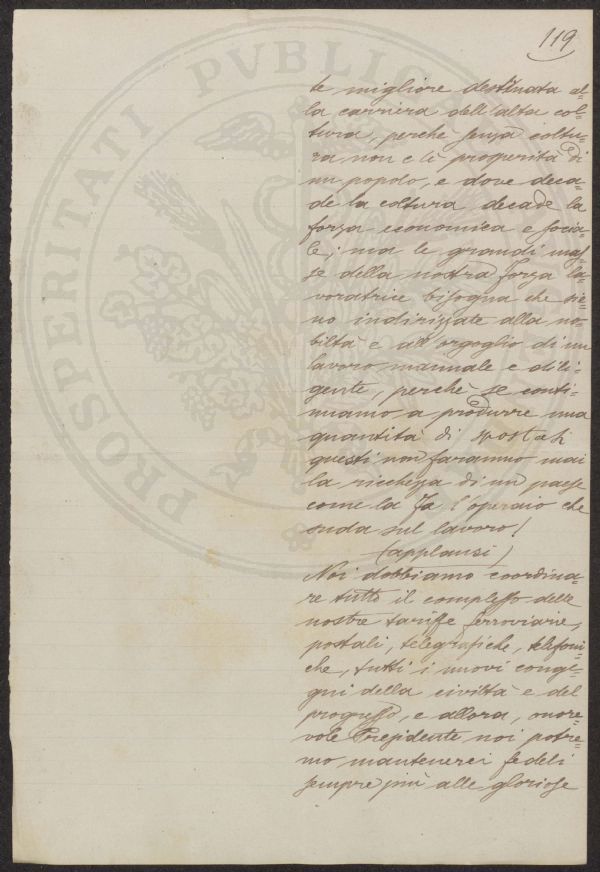 119
te migliore destinata al-
la carriera dell'alta col-
tura, perchè senza coltu-
ra non c'è prosperità di
un popolo, e dove deca-
de la coltura decade la
forza economica e socia-
le; ma le grandi mas-
se della nostra forza la-
voratrice bisogna che sie-
no indirizzate alla no-
biltà e all'orgoglio di un
lavoro manuale e dili-
gente, perchè se conti-
nuamo a produrre una
quantità di spostati
questi non faranno mai
la ricchezza di un paese
come la fa l'operaio che
suda sul lavoro!
(applausi)
Noi dobbiamo coordina-
re tutto il complesso delle
nostre tariffe ferroviarie,
postali, telegrafiche, telefoni-
che, tutti i nuovi conge-
gni della civiltà e del
progresso, e allora, onore-
vole Presidente noi potre-
mo mantenerci fedeli
sempre più alle gloriose
PROSPERITATI PVBLICAE